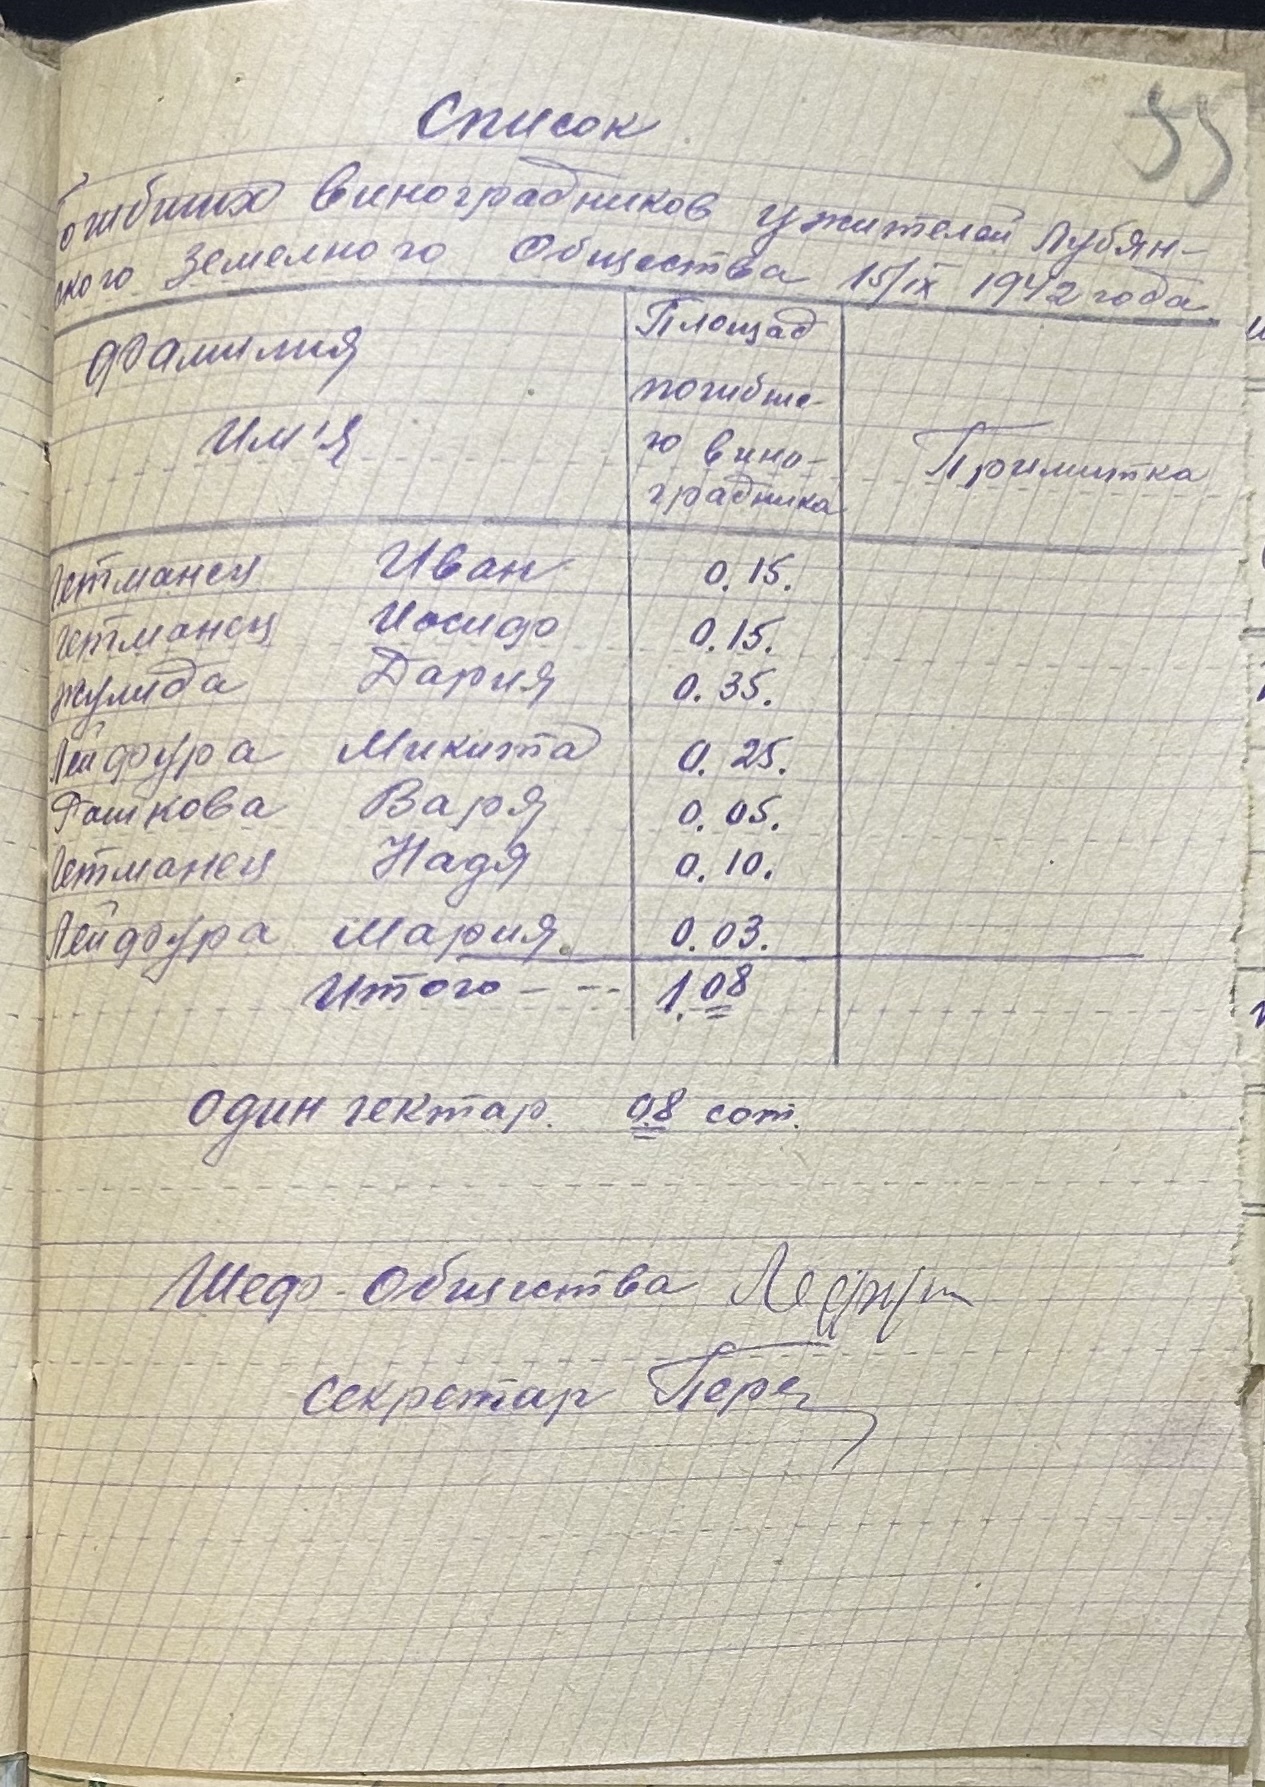 55
Список
погибших виноградников у жителей Лубян-
ского Земелного Общества 15/IX 1942 года
Фамилия
Им'я
Площад
погибше-
го вино-
градника
Примитка
Гетманец Иван 0.15.
Гетманец Иосиф 0.15.
Жулида Дария 0.35.
Лейфура Микита 0.25.
Гошкова Варя 0.05.
Гетманец Надя 0.10.
Лейфура Мария 0.03.
Итого - -- 1.08
один гектар. 08 сот.
Шеф-Общества
секретар